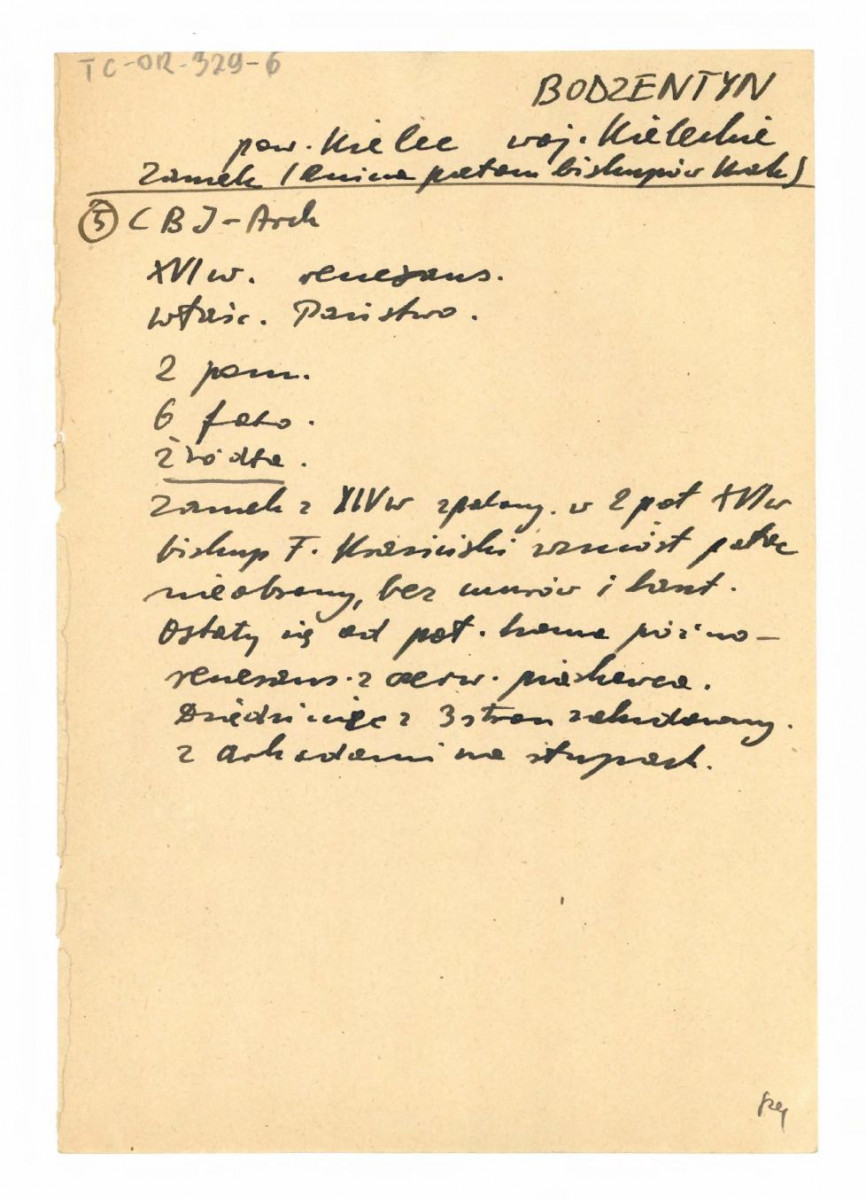 TC-OR-329-6
BODZENTYN
pow. Kielce woj. Kieleckie
Zamek (ruina pałacu biskupów krak)
5 CBJ-Arch
XVI w. renesans.
właśc. Państwo.
2 pom.
6 foto.
Źródła.
Zamek z XIV w spalony. w 2 poł XVI w
biskup F. Krasiński wzniósł pałac
nieobronny, bez murów i baszt.
Ostały się od poł. brama późno-
renesans. z czerw. piaskowca.
Dziedziniec z 3 stron zabudowany.
z arkadami na słupach.